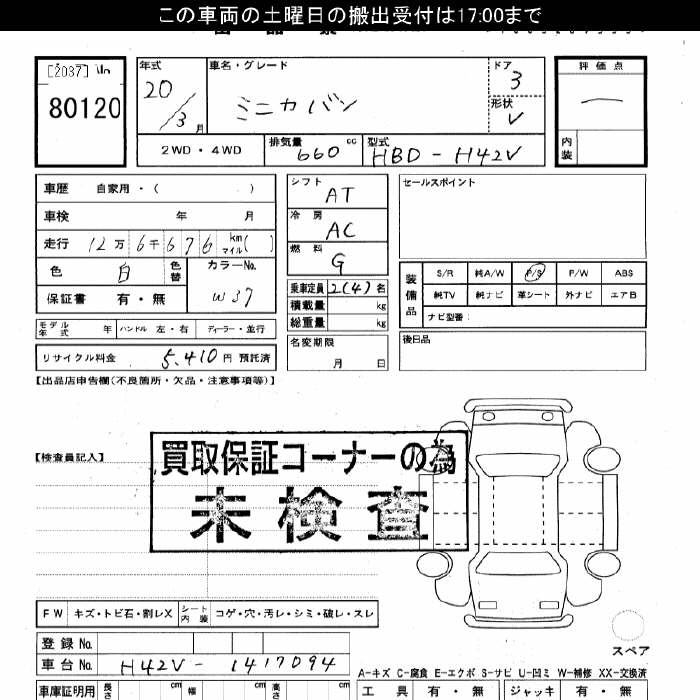 この車両の土曜日の搬出受付は17:00まで
[2037]
80120
年式 20/3月
車名・グレード ミニカバン
ドア 3
形状 V
評価点 —
内装
2WD・4WD
排気量 660cc
型式 HBD-H42V
車歴 自家用・( )
車検 年 月
走行 12万6千676km マイル( )
色 白 色替
カラーNo. W37
保証書 有・無
モデル年式 年 ハンドル 左・右 ディーラー・並行
リサイクル料金 5,410円 預託済
シフト AT
冷房 AC
燃料 G
乗車定員 2(4)名
積載量 kg
総重量 kg
名変期限 月 日
セールスポイント
装備品 S/R 純A/W P/S P/W ABS
純TV 純ナビ 革シート 外ナビ エアB
ナビ型番:
後日品
【出品店申告欄(不良箇所・欠品・注意事項等)】
【検査員記入】
買取保証コーナーの為
未検査
FW キズ・トビ石・割レX シート内装 コゲ・穴・汚レ・シミ・破レ・スレ
スペア
登録No.
車台No. H42V-1417094
A-キズ C-腐食 E-エクボ S-サビ U-凹ミ W-補修 XX-交換済
車庫証明用 長さ cm 幅 cm 高さ cm
工具 有・無 ジャッキ 有・無